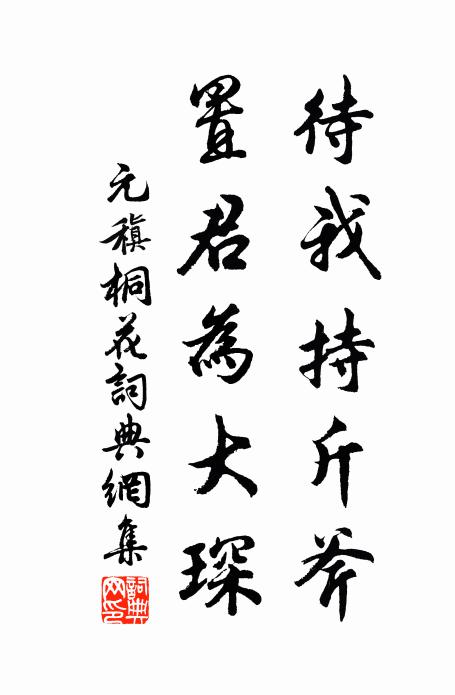 待我持斤斧
置君為大琛
元稹桐花詞典網集
詞典网印